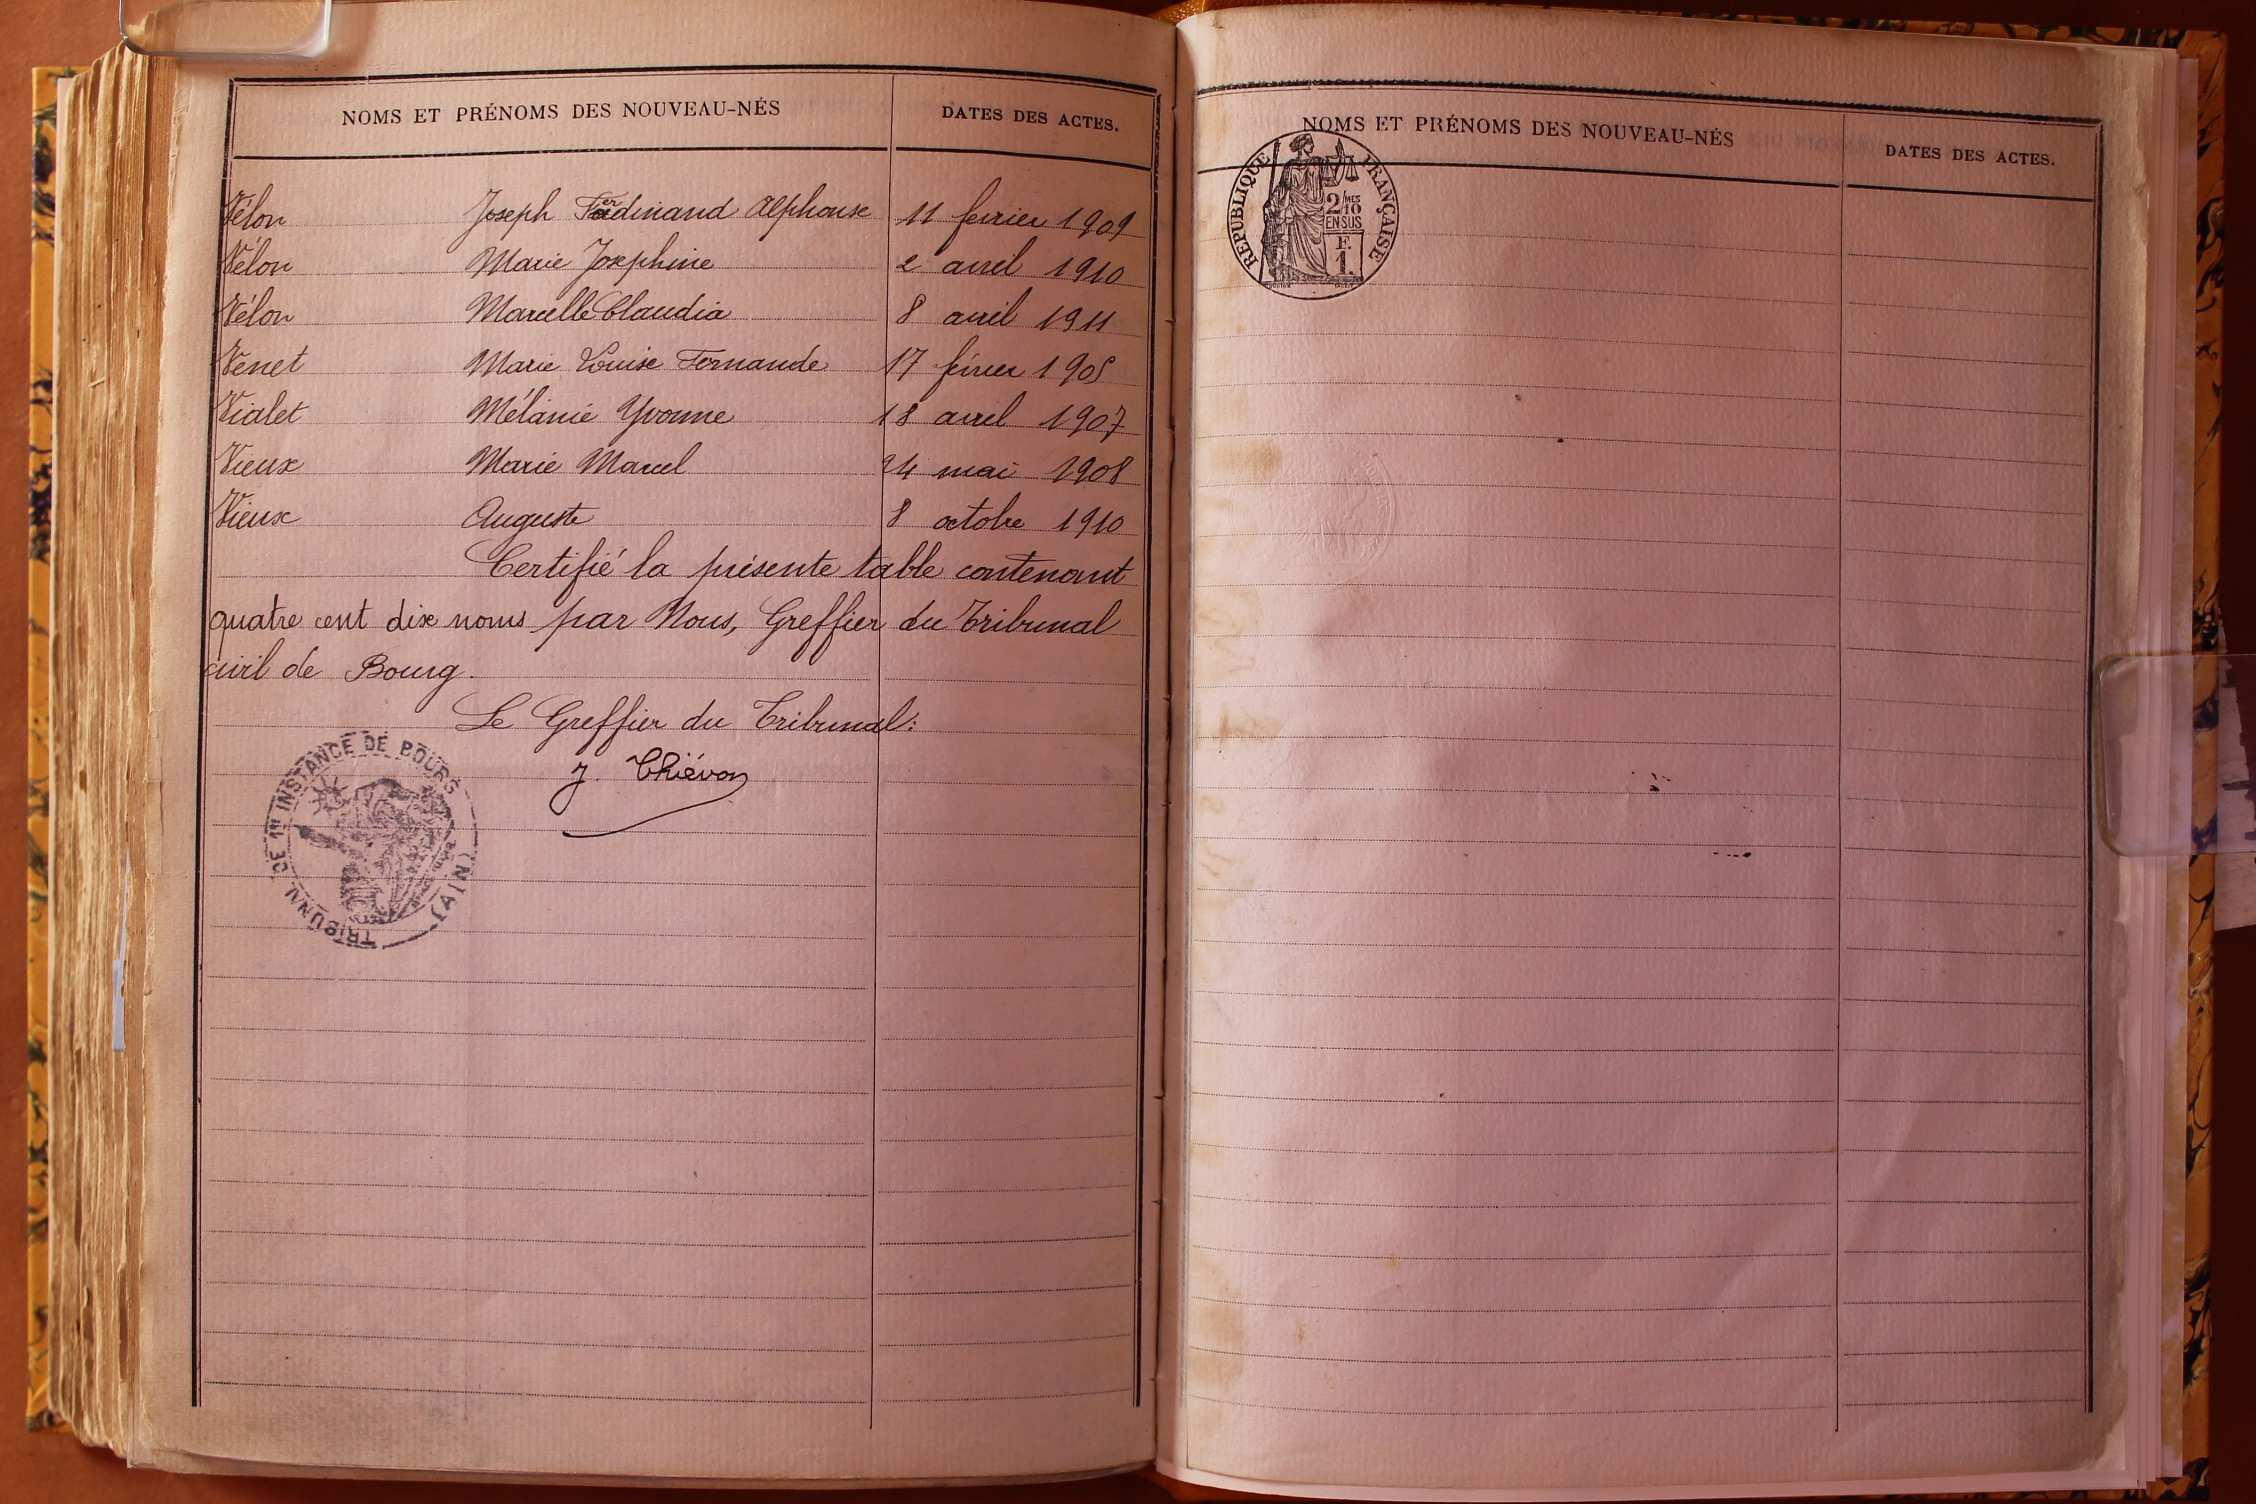 NOMS ET PRÉNOMS DES NOUVEAU-NÉS DATES DES ACTES.
Vélon Joseph Ferdinand Alphonse 11 février 1909
Vélon Marie Joséphine 2 avril 1910
Vélon Marcelle Claudia 8 avril 1911
Venet Marie Louise Fernande 17 février 1905
Vialet Mélanie Yvonne 18 avril 1907
Vieux Marie Marcel 24 mai 1908
Vieux Auguste 8 octobre 1910
Certifié la présente table contenant
quatre cent dix noms par Nous, Greffier du Tribunal
civil de Bourg.
Le Greffier du Tribunal:
J. Thiévon
TRIBUNAL DE 1RE INSTANCE DE BOURG
(AIN)
NOMS ET PRÉNOMS DES NOUVEAU-NÉS DATES DES ACTES.
REPUBLIQUE FRANÇAISE
2/MES 10
EN SUS
F.
1.